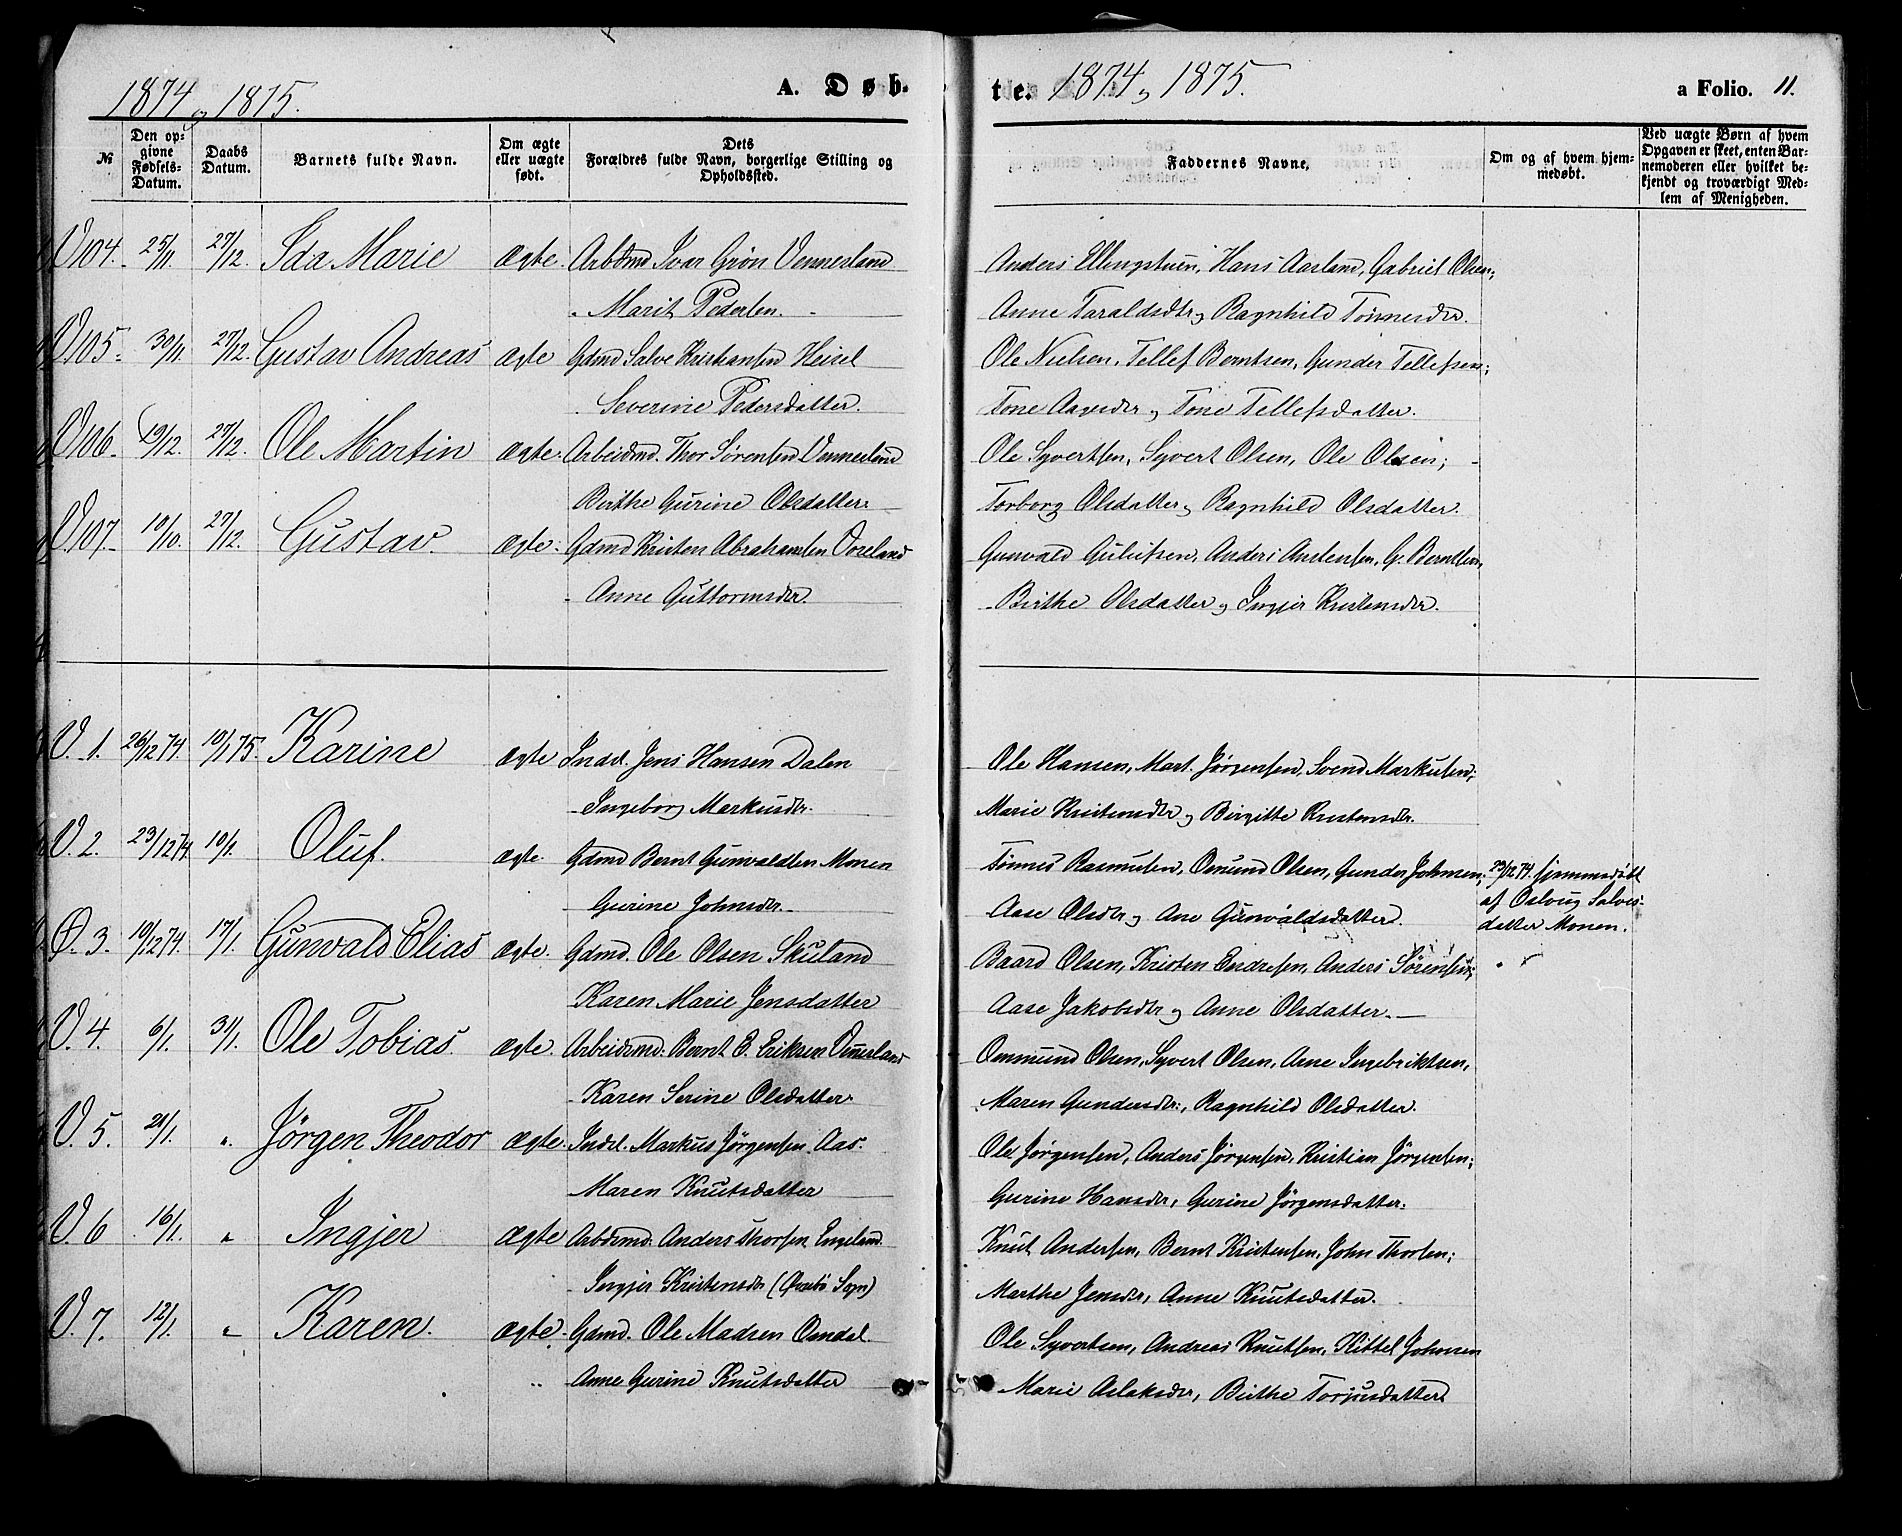 1874 og 1875.
A. Døb-
№
Den op-
givne
Fødsels-
Datum.
Daabs
Datum.
Barnets fulde Navn.
Om ægte
eller uægte
født.
Dets
Forældres fulde Navn, borgerlige Stilling og
Opholdssted.
V. 104. 25/11. 27/12. Ida Marie ægte. Arbdmd Ivar Grön Vennesland
Marit Pedersen.
V. 105. 30/11. 27/12. Gustav Andreas ægte Gdmd Salve Kristiansen Heisel
Severine Pedersdatter.
V. 106. 19/12. 27/12. Ole Martin ægte. Arbeidsmd. Thor Sörensen Vennesland
Birthe Gurine Olsdatter
V. 107. 10/10. 27/12. Gustav. ægte. Gdmd Kristen Abrahamsen Voreland
Anne Guttormsdtr.
V. 1. 26/12 74. 10/1 75. Karine ægte Indd. Jens Hansen Dalen
Ingeborg Markusdtr.
V. 2. 23/12 74. 10/1. Oluf. ægte. Gdmd Bernt Gunvaldsen Monen
Gurine Johnsdtr.
Ø. 3. 19/12 74. 17/1. Gunvald Elias ægte. Gdmd. Ole Olsen Skuland
Karen Marie Jensdatter
V. 4. 6/1. 31/1. Ole Tobias. ægte. Arbeidsmd. Bernt E. Eriksen Vennesland
Karen Serine Olsdatter.
V. 5. 21/1. " Jörgen Theodor ægte. Indd. Markus Jörgensen Aas.
Maren Knutsdatter
V. 6 16/1. " Ingjer ægte Arbdsmd. Anders Thorsen Engeland
Ingjer Kristensdtr (Øvrebö Sogn)
V. 7. 12/1. " Karen. ægte. Gdmd. Ole Madsen Omdal.
Anne Gurine Knutsdatter
te. 1874 og 1875.
a Folio. 11.
Faddernes Navne.
Om og af hvem hjem-
medøbt.
Ved uægte Børn af hvem
Opgaven er skeet, enten Bar-
nemoderen eller hvilket be-
kjendt og troværdigt Med-
lem af Menigheden.
Anders Ellingstuen, Hans Aasland, Gabriel Olsen;
Anne Taraldsdtr og Ragnhild Tönnesdtr.
Ole Nielsen, Tellef Berntsen, Gunder Tellefsen;
Tone Aagesdtr og Tone Tellefsdatter.
Ole Syvertsen, Syvert Olsen, Ole Olsen;
Torborg Olsdatter og Ragnhild Olsdatter.
Gunvald Gulufsen, Anders Austensen, G. Berntsen,
Birthe Olsdatter og Ingjer Kristensdtr.
Ole Hansen, Mart. Jörgensen, Svend Markusen;
Marie Kristensdtr og Birgitte Kristensdtr.
Tönnes Rasmusen, Omund Olsen, Gunder Johnsen; 23/12 74. hjemmedöbt
Aase Olsdtr og Ane Gunvaldsdatter. af Oslaug Salves-
datter Monen.
Baard Olsen, Kristen Endresen, Anders Sörensen;
Aase Jakobsdtr og Anne Olsdatter.
Ommund Olsen, Syvert Olsen, Arne Ingebriktsen,
Maren Gundersdtr., Ragnhild Olsdatter.
Ole Jörgensen, Anders Jörgensen, Kristian Jörgensen;
Gurine Hansdtr, Gurine Jörgensdatter.
Knut Andersen, Bernt Kristensen, John Thorsen;
Marthe Jensdtr, Anne Knutsdatter.
Ole Syvertsen, Andreas Knutsen, Kittel Johnsen
Marie Aslaksdtr, Birthe Torjusdatter